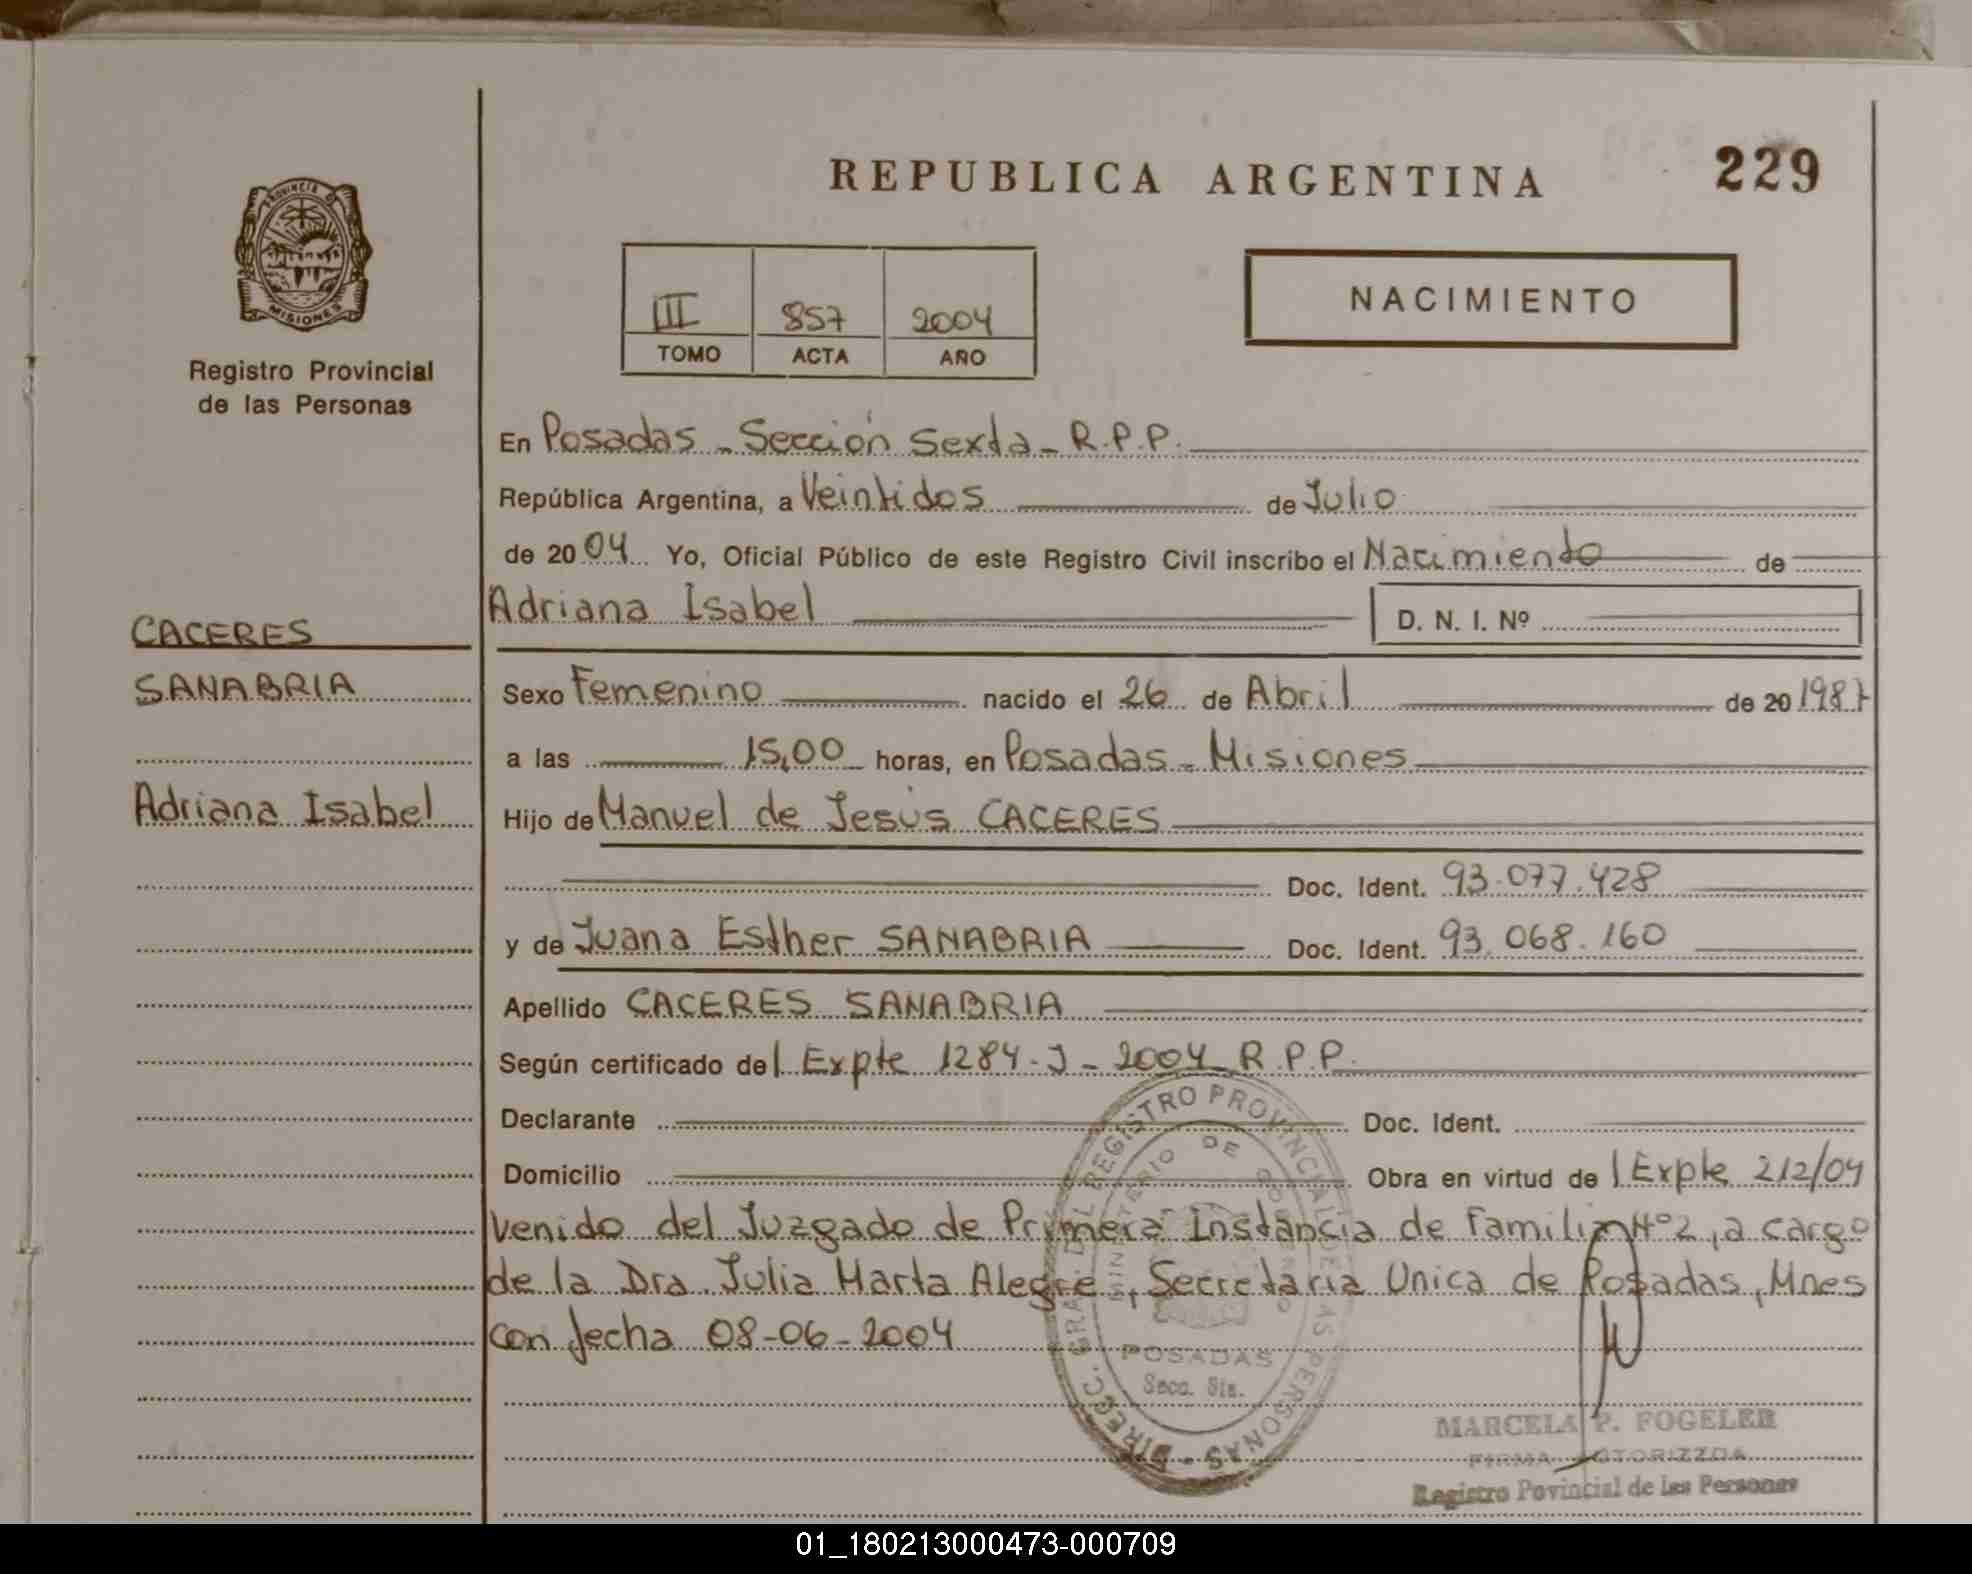 REPUBLICA ARGENTINA
229
PROVINCIA D
MISIONES
Registro Provincial
de las Personas
III 857 2004
TOMO ACTA AÑO
NACIMIENTO
En Posadas - Sección Sexta - R.P.P.
República Argentina, a Veintidos de Julio
de 2004 Yo, Oficial Público de este Registro Civil inscribo el Nacimiento de
Adriana Isabel D. N. I. Nº
CACERES
SANABRIA
Adriana Isabel
Sexo Femenino nacido el 26 de Abril de 20 1987
a las 15,00 horas, en Posadas - Misiones
Hijo de Manuel de Jesús CACERES
Doc. Ident. 93.077.428
y de Juana Esther SANABRIA Doc. Ident. 93.068.160
Apellido CACERES SANABRIA
Según certificado del Expte 1284-J-2004 R.P.P.
Declarante Doc. Ident.
Domicilio Obra en virtud del Expte 212/04
venido del Juzgado de Primera Instancia de Familia Nº2, a cargo
de la Dra. Julia Marta Alegre, Secretaria Unica de Posadas, Mnes
con fecha 08-06-2004
DIRECC. GRAL. DEL REGISTRO PROVINCIAL DE LAS PERSONAS
MINISTERIO DE GOBIERNO
POSADAS
Secc. 6ta.
MARCELA P. FOGELER
FIRMA AUTORIZZDA
Registro Povincial de las Personas
01_180213000473-000709